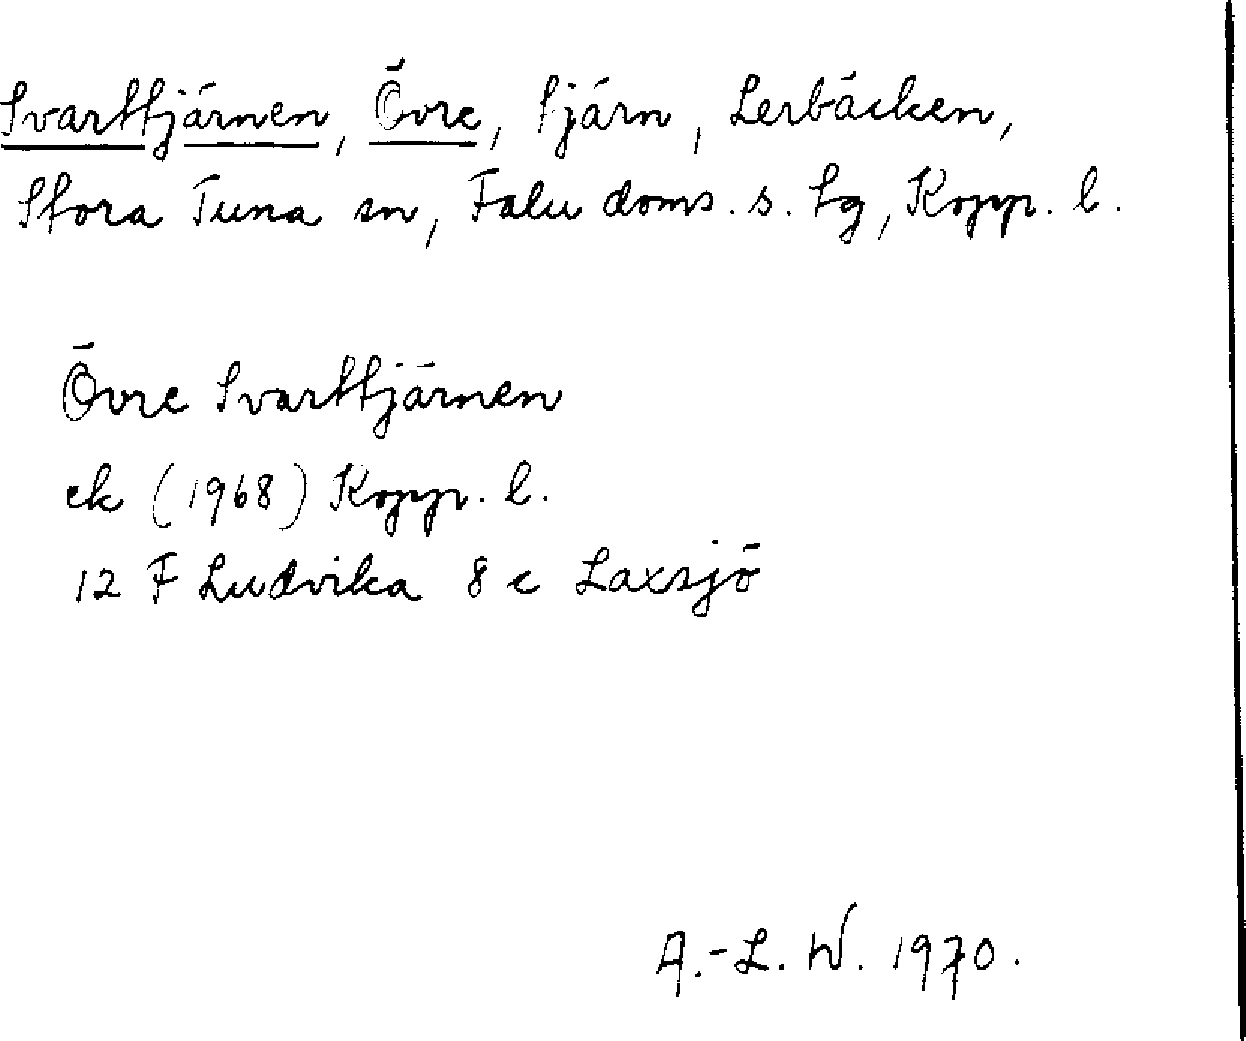 Svarttjärnen, Övre, tjärn, Lerbäcken,
Stora Tuna sn, Falu doms. s. tg, Kopp. l.
Övre Svarttjärnen
ek (1968) Kopp. l.
12 F Ludvika 8 c Laxsjö
A.-L. W. 1970.